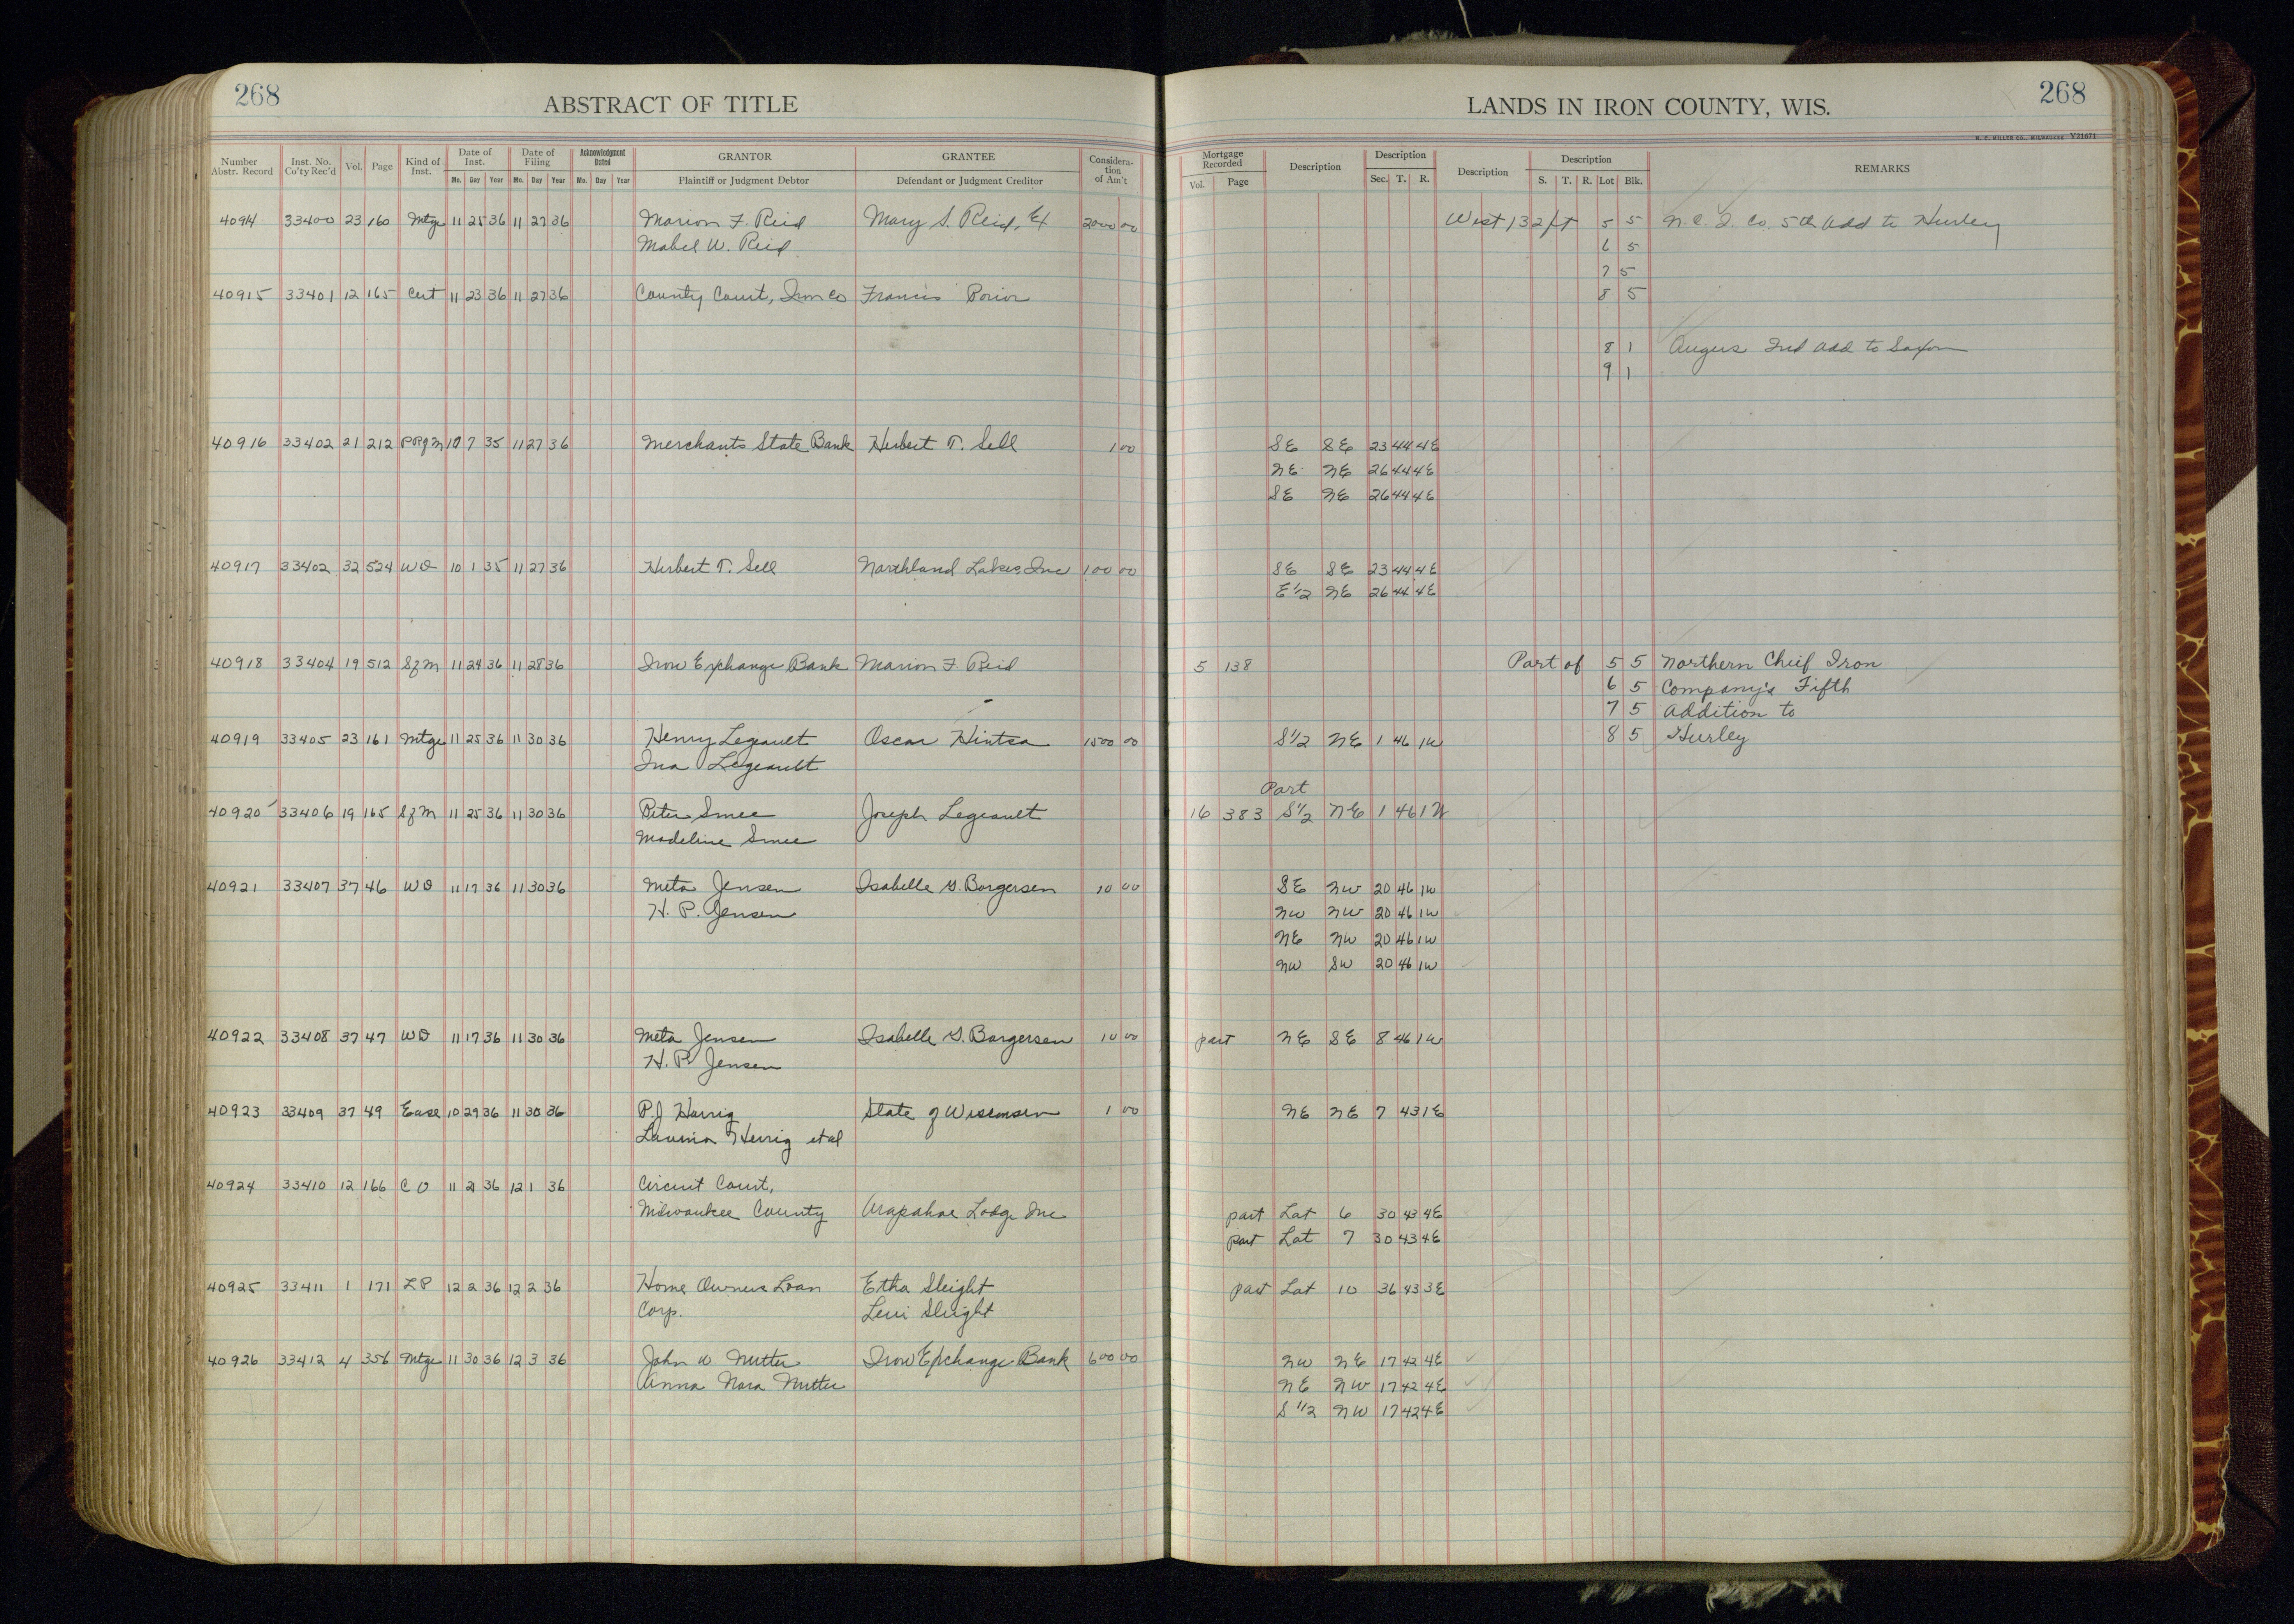 268
ABSTRACT OF TITLE
LANDS IN IRON COUNTY, WIS.
268
H. C. MILLER CO., MILWAUKEE Y21671
Number Abstr. Record Inst. No. Co'ty Rec'd Vol. Page Kind of Inst. Date of Inst. Mo. Day Year Date of Filing Mo. Day Year Acknowledgment Dated Mo. Day Year GRANTOR Plaintiff or Judgment Debtor GRANTEE Defendant or Judgment Creditor Considera-tion of Am't Mortgage Recorded Vol. Page Description Description Sec. T. R. Description Description S. T. R. Lot Blk. REMARKS
40914 33400 23 160 Mtge 11 25 36 11 27 36 Marion F. Reid Mary S. Reid, Ex 2000 00 West 132 ft 5 5 N. C. I. Co. 5th Add to Hurley
Mabel W. Reid 6 5
7 5
40915 33401 12 165 Cert 11 23 36 11 27 36 County Court, Iron Co Francis Porior 8 5
8 1 Angus 2nd Add to Saxon
9 1
40916 33402 21 212 PRgM 10 7 35 11 27 36 Merchants State Bank Herbert T. Sell 1 00 SE SE 23 44 4E
NE NE 26 44 4E
SE NE 26 44 4E
40917 33402 32 524 WD 10 1 35 11 27 36 Herbert T. Sell Northland Lakes, Inc 100 00 SE SE 23 44 4E
E 1/2 NE 26 44 4E
40918 33404 19 512 SfM 11 24 36 11 28 36 Iron Exchange Bank Marion F Reid 5 138 Part of 5 5 Northern Chief Iron
6 5 Company's Fifth
7 5 Addition to
40919 33405 23 161 Mtge 11 25 36 11 30 36 Henry Legeault Oscar Hintsa 1500 00 S 1/2 NE 1 46 1W 8 5 Hurley
Ina Legeault
Part
40920 33406 19 165 SfM 11 25 36 11 30 36 Peter Smee Joseph Legeault 16 383 S 1/2 NE 1 46 1W
Madeline Smee
40921 33407 37 46 WD 11 17 36 11 30 36 Meta Jensen Isabelle G. Borgersen 10 00 SE NW 20 46 1W
H. P. Jensen NW NW 20 46 1W
NE NW 20 46 1W
NW SW 20 46 1W
40922 33408 37 47 WD 11 17 36 11 30 36 Meta Jensen Isabelle G. Borgersen 10 00 part NE SE 8 46 1W
H. P. Jensen
40923 33409 37 49 Ease 10 29 36 11 30 36 P.J Herrig State of Wisconsin 1 00 NE NE 7 43 1E
Lavina Herrig et al
40924 33410 12 166 C O 11 21 36 12 1 36 Circuit Court,
Milwaukee County Arapahoe Lodge Inc part Lot 6 30 43 4E
part Lot 7 30 43 4E
40925 33411 1 171 LP 12 2 36 12 2 36 Home Owners Loan Etha Sleight part Lot 10 36 43 3E
Corp. Levi Sleight
40926 33412 4 356 Mtge 11 30 36 12 3 36 John W Mutter Iron Exchange Bank 600 00 NW NE 17 42 4E
Anna Nora Mutter NE NW 17 42 4E
S 1/2 NW 17 42 4E